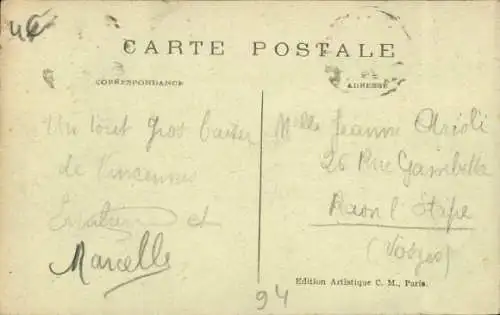 4c
CARTE POSTALE
CORRESPONDANCE
ADRESSE
Un tout gros baiser
de Vincennes
et
Marcelle
Mlle Jeanne Arioli
26 Rue Gambetta
Raon l'Étape
(Vosges)
Edition Artistique C. M., Paris.
94